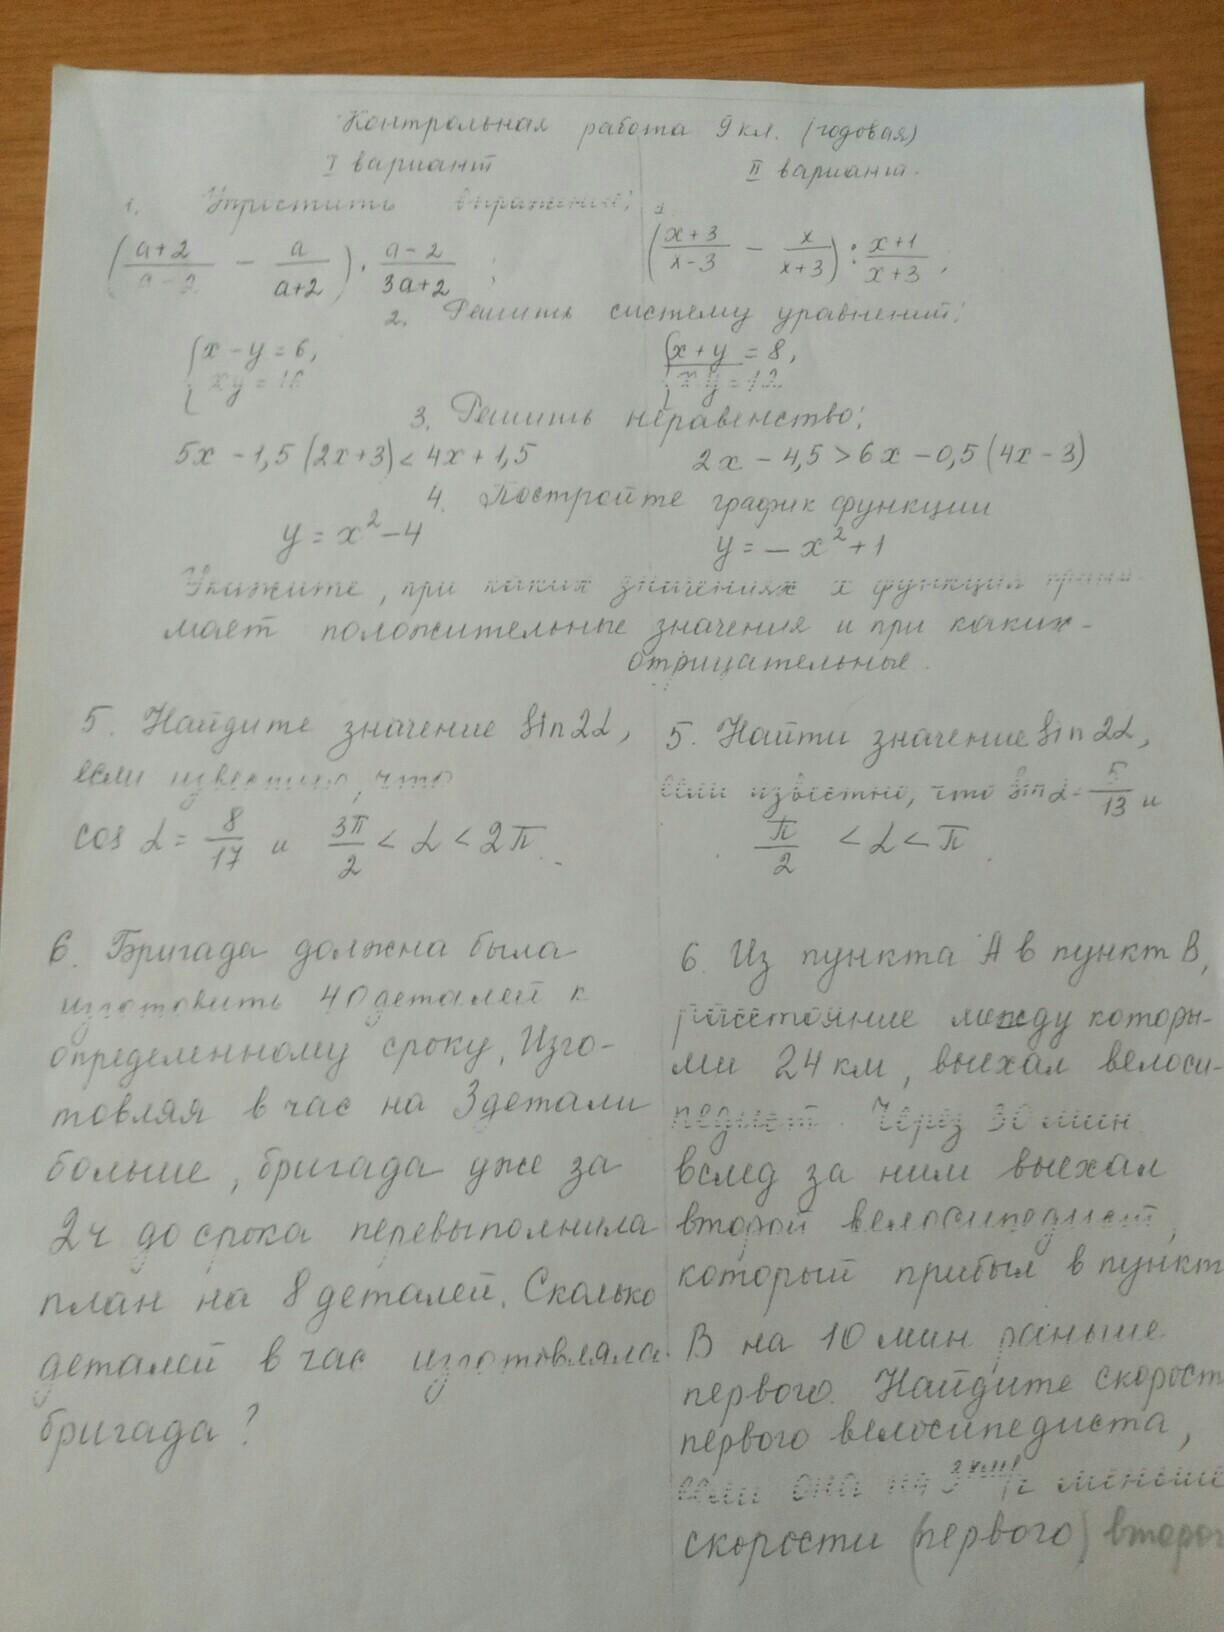 Контрольная работа 9 кл. (годовая)
I вариант
II вариант.
1. Упростить выражение:
1.
(a+2/a-2 - a/a+2) · a-2/3a+2 ;
(x+3/x-3 - x/x+3) : x+1/x+3 ;
2. Решить систему уравнений:
{x-y=6,
xy=16
{x+y=8,
xy=12
3. Решить неравенство:
5x-1,5(2x+3)<4x+1,5
2x-4,5>6x-0,5(4x-3)
4. Постройте график функции
y=x²-4
y=-x²+1
Укажите, при каких значениях x функция прини-
мает положительные значения и при каких-
отрицательные.
5. Найдите значение sin2α,
если известно, что
cos α = 8/17 и 3π/2 < α < 2π.
6. Бригада должна была
изготовить 40 деталей к
определенному сроку. Изго-
товляя в час на 3 детали
больше, бригада уже за
2ч до срока перевыполнила
план на 8 деталей. Сколько
деталей в час изготовляла
бригада?
5. Найти значение sin2α,
если известно, что sinα=5/13 и
π/2 < α < π.
6. Из пункта A в пункт B,
расстояние между которы-
ми 24 км, выехал велоси-
педист. Через 30 мин
вслед за ним выехал
второй велосипедист,
который прибыл в пункт
B на 10 мин раньше
первого. Найдите скорост
первого велосипедиста,
если она на 3 км/ч меньше
скорости (первого) второг